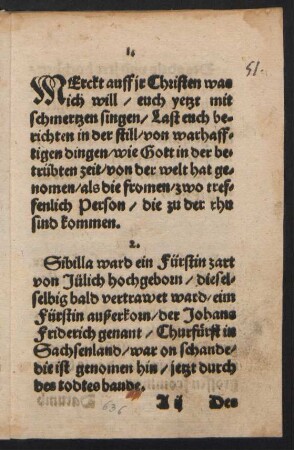 1.
51.
MErckt auff jr Christen was
ich will / euch yetzt mit
schmertzen singen / Last euch be⸗
richten in der still / von warhaff⸗
tigen dingen / wie Gott in der be⸗
trübten zeit / von der welt hat ge⸗
nomen / als die fromen / zwo tref⸗
fenlich Person / die zu der rhu
sind kommen.
2.
Sibilla ward ein Fürstin zart
von Jülich hochgeborn / diesel⸗
selbig bald vertrawet ward / eim
Fürstin außerkorn / der Johans
Friderich genant / Churfürst in
Sachsenland / war on schande /
die ist genomen hin / jetzt durch
des todtes bande.
636
A ij Des